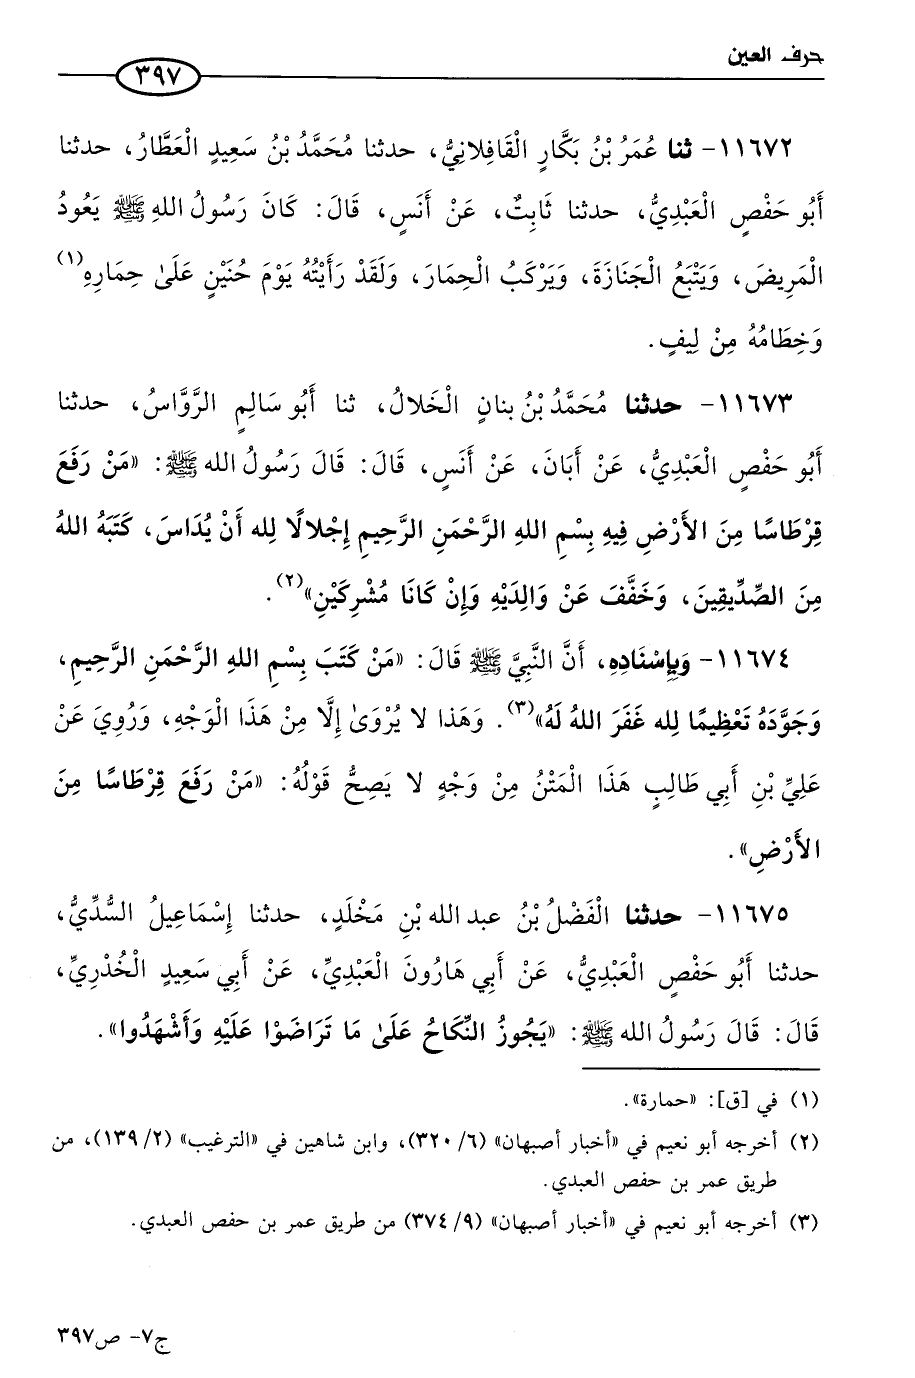 حرف العين
٣٩٧
١١٦٧٢- ثنا عُمَرُ بْنُ بَكَّارٍ الْقَافِلانِيُّ، حدثنا مُحَمَّدُ بْنُ سَعِيدٍ الْعَطَّارُ، حدثنا
أَبُو حَفْصٍ الْعَبْدِيُّ، حدثنا ثَابِتٌ، عَنْ أَنَسٍ، قَالَ: كَانَ رَسُولُ اللهِ ﷺ يَعُودُ
الْمَرِيضَ، وَيَتْبَعُ الْجَنَازَةَ، وَيَرْكَبُ الْحِمَارَ، وَلَقَدْ رَأَيْتُهُ يَوْمَ حُنَيْنٍ عَلَىٰ حِمَارِهِ(١)
وَخِطَامُهُ مِنْ لِيفٍ.
١١٦٧٣- حدثنا مُحَمَّدُ بْنُ بنانٍ الْخَلالُ، ثنا أَبُو سَالِمٍ الرَّوَّاسُ، حدثنا
أَبُو حَفْصٍ الْعَبْدِيُّ، عَنْ أَبَانَ، عَنْ أَنَسٍ، قَالَ: قَالَ رَسُولُ الله ﷺ: «مَنْ رَفَعَ
قِرْطَاسًا مِنَ الأَرْضِ فِيهِ بِسْمِ اللهِ الرَّحْمَنِ الرَّحِيمِ إِجْلالًا لِله أَنْ يُدَاسَ، كَتَبَهُ اللهُ
مِنَ الصِّدِّيقِينَ، وَخَفَّفَ عَنْ وَالِدَيْهِ وَإِنْ كَانَا مُشْرِكَيْنِ»(٢).
١١٦٧٤- وَبِإِسْنَادِهِ، أَنَّ النَّبِيَّ ﷺ قَالَ: «مَنْ كَتَبَ بِسْمِ اللهِ الرَّحْمَنِ الرَّحِيمِ،
وَجَوَّدَهُ تَعْظِيمًا لِله غَفَرَ اللهُ لَهُ»(٣). وَهَذَا لا يُرْوَىٰ إِلَّا مِنْ هَذَا الْوَجْهِ، وَرُوِيَ عَنْ
عَلِيِّ بْنِ أَبِي طَالِبٍ هَذَا الْمَتْنُ مِنْ وَجْهٍ لا يَصِحُّ قَوْلُهُ: «مَنْ رَفَعَ قِرْطَاسًا مِنَ
الأَرْضِ».
١١٦٧٥- حدثنا الْفَضْلُ بْنُ عبد الله بْنِ مَخْلَدٍ، حدثنا إِسْمَاعِيلُ السُّدِّيُّ،
حدثنا أَبُو حَفْصٍ الْعَبْدِيُّ، عَنْ أَبِي هَارُونَ الْعَبْدِيِّ، عَنْ أَبِي سَعِيدٍ الْخُدْرِيِّ،
قَالَ: قَالَ رَسُولُ الله ﷺ: «يَجُوزُ النِّكَاحُ عَلَىٰ مَا تَرَاضَوْا عَلَيْهِ وَأَشْهَدُوا».
(١) في [ق]: «حمارة».
(٢) أخرجه أبو نعيم في «أخبار أصبهان» (٦/ ٣٢٠)، وابن شاهين في «الترغيب» (٢/ ١٣٩)، من
طريق عمر بن حفص العبدي.
(٣) أخرجه أبو نعيم في «أخبار أصبهان» (٩/ ٣٧٤) من طريق عمر بن حفص العبدي.
ج٧- ص٣٩٧